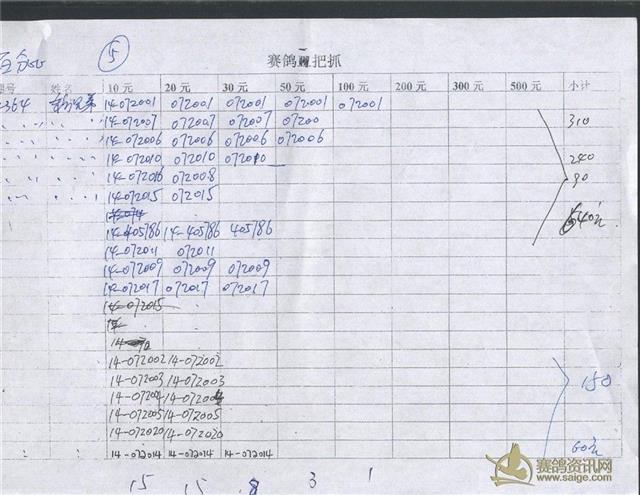 ⑤
赛鸽 把抓
姓名 10 元 20 元 30 元 50 元 100 元 200 元 300 元 500 元 小计
364 14-072001 072001 072001 072001 072001
14-072007 072007 072007 07200 310
14-072006 072006 072006 072006
14-072010 072010 072010 240
072008 90
14-072015 072015
640元
14-405786 14-405786 405786
14-072011 072011
14-072009 072009 072009
14-072017 072017 072017
14-072015
14
14-072002 14-072002
14-072003 14-072003 150
14-072004
14-072005 14-072005
14-072020 14-072020
14-072014 14-072014 14-072014 60元
15 15 8 3 1
赛鸽资讯网
www.saige.com